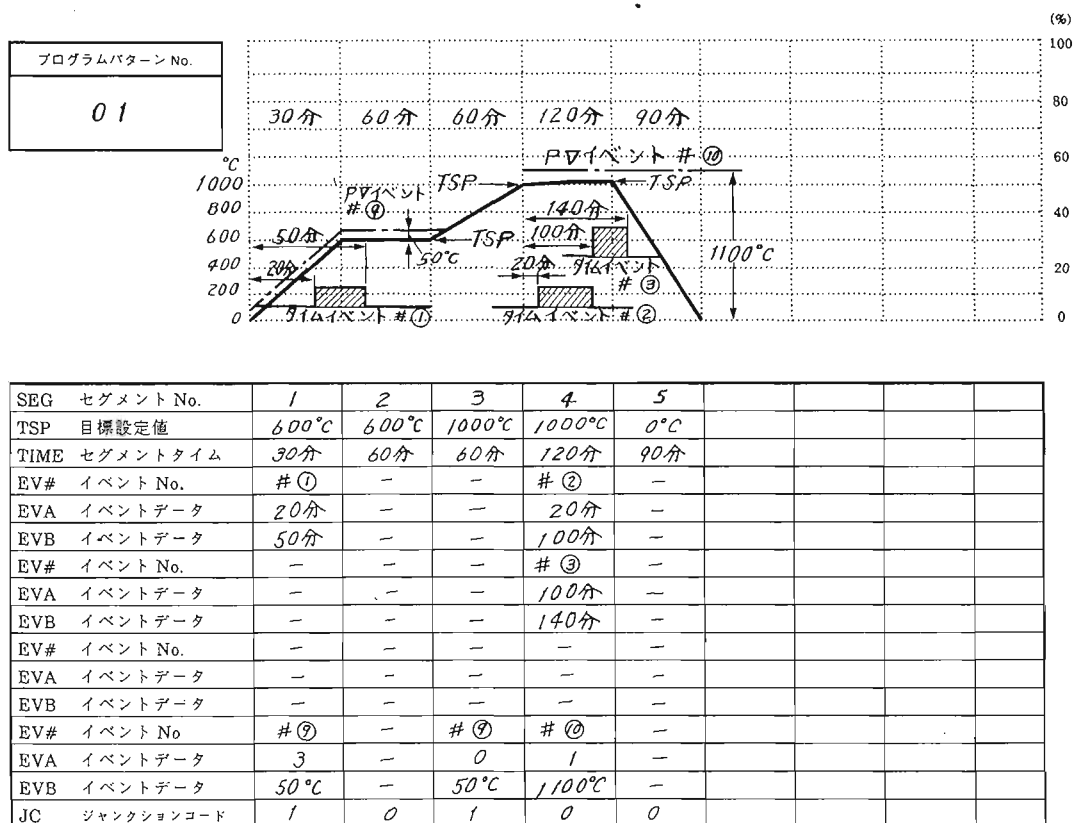 (%)
プログラムパターン No.
01
100
80
60
40
20
0
30分 60分 60分 120分 90分
℃
1000
800
600
400
200
0
PVイベント #⑩
PVイベント
#⑨
TSP
TSP
TSP
140分
100分
50分
50℃
20分
20分
1100℃
タイムイベント
#③
タイムイベント #①
タイムイベント #②
SEG セグメント No. 1 2 3 4 5
TSP 目標設定値 600℃ 600℃ 1000℃ 1000℃ 0℃
TIME セグメントタイム 30分 60分 60分 120分 90分
EV# イベント No. #① - - #② -
EVA イベントデータ 20分 - - 20分 -
EVB イベントデータ 50分 - - 100分 -
EV# イベント No. - - - #③ -
EVA イベントデータ - - - 100分 -
EVB イベントデータ - - - 140分 -
EV# イベント No. - - - - -
EVA イベントデータ - - - - -
EVB イベントデータ - - - - -
EV# イベント No #⑨ - #⑨ #⑩ -
EVA イベントデータ 3 - 0 1 -
EVB イベントデータ 50℃ - 50℃ 1100℃ -
JC ジャンクションコード 1 0 1 0 0